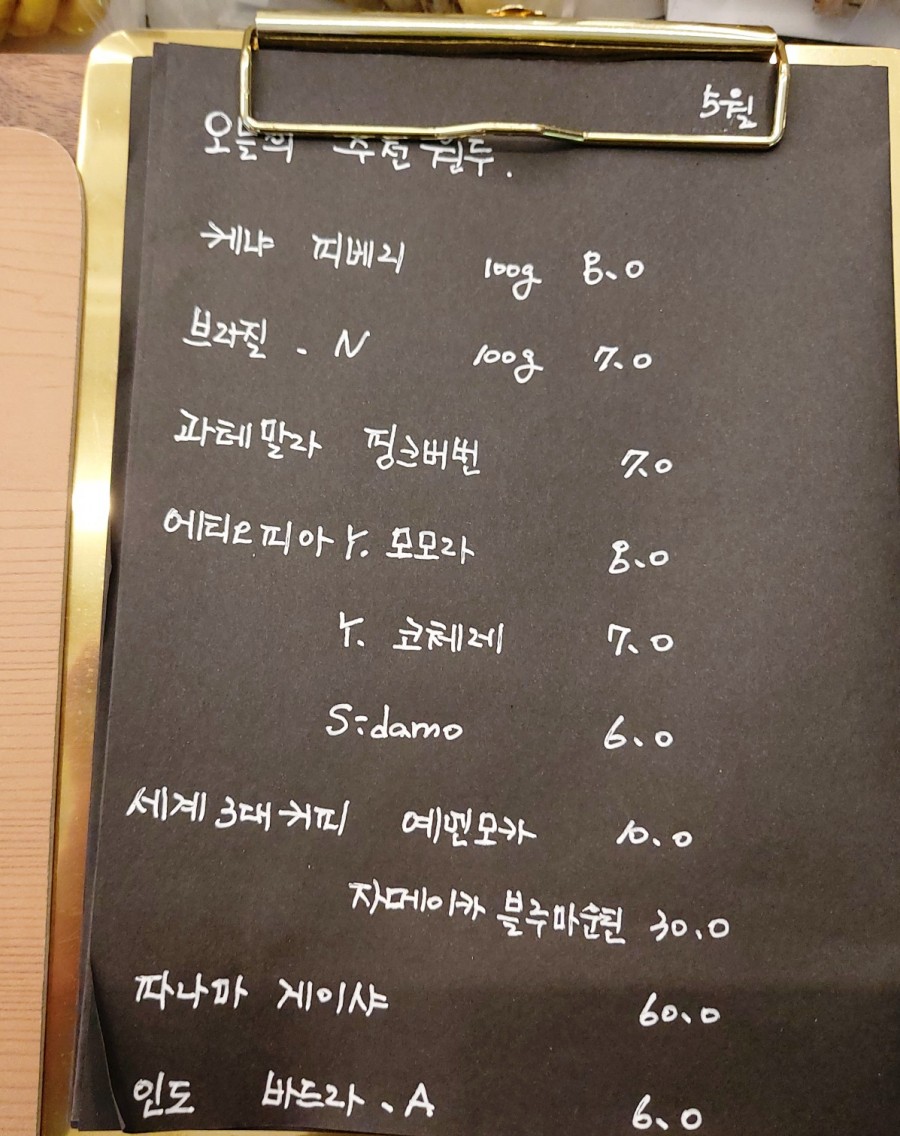 5월
오늘의 추천 원두.
케냐 피베리 100g 8.0
브라질 . N 100g 7.0
과테말라 핑크버번 7.0
에티오피아 Y. 모모라 8.0
Y. 코체레 7.0
Sidamo 6.0
세계 3대 커피 예멘모카 10.0
자메이카 블루마운틴 30.0
파나마 게이샤 60.0
인도 바드라 . A 6.0